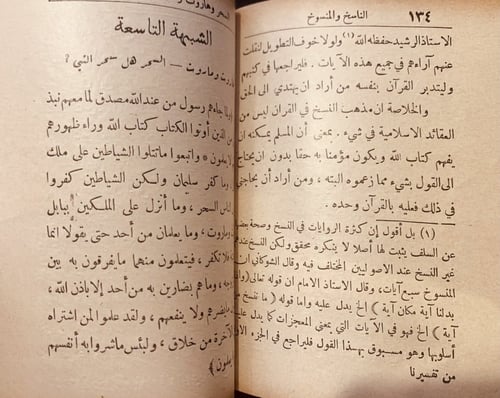 ١٣٤ الناسخ والمنسوخ
الاستاذ الرشيد حفظه الله (١) ولولا خوف التطويل لنقلت
عنهم آراءهم في جميع هذه الآيات . فليراجعها في كتبهم
وليتدبر القرآن بنفسه من أراد ان يهتدي الى الحق
والخلاصة ان مذهب النسخ في القران ليس من
العقائد الاسلامية في شيء . بمعنى أن المسلم يمكنه ان
يفهم كتاب الله ويكون مؤمنا به حقا بدون ان يحتاج
الى القول بشيء مما زعموه البته . ومن أراد أن يحاجني
في ذلك فعليه بالقرآن وحده .
(١) بل أقول إن كثرة الروايات في النسخ وصحة بعض
عن السلف يثبت لها أصلا لا ينكره محقق ولكن النسخ عند
غير النسخ عند الاصوليين المختلف فيه وقال الشوكاني ان
المنسوخ سبع آيات ، وقال الاستاذ الامام ان قوله تعالى (وا
بدلنا آية مكان آية ) الخ يدل عليه واما قوله ( ما ننسخ من
آية ) الخ فهو في الآيات التي بمعنى المعجزات كما يدل عليه
أسلوبها وهو مسبوق بهذا القول فليراجع في الجزء الا
من تفسيرنا
السحر وهاروت و
الشبهة التاسعة
روت وماروت — السحر هل سحر النبي ؟
ولما جاءهم رسول من عند الله مصدق لما معهم نبذ
من الذين أوتوا الكتاب كتاب الله وراء ظهورهم
لا يعلمون * واتبعوا ما تتلوا الشياطين على ملك
وما كفر سليمان ولكن الشياطين كفروا
الناس السحر ، وما أنزل على الملكين ببابل
وماروت ، وما يعلمان من أحد حتى يقولا انما
فلا تكفر ، فيتعلمون منهما ما يفرقون به بين
وجه ، وماهم بضارين به من أحد إلا باذن الله ،
ما يضرهم ولا ينفعهم ، ولقد علموا لمن اشتراه
الآخرة من خلاق ، ولبئس ما شروا به أنفسهم
يعلمون )